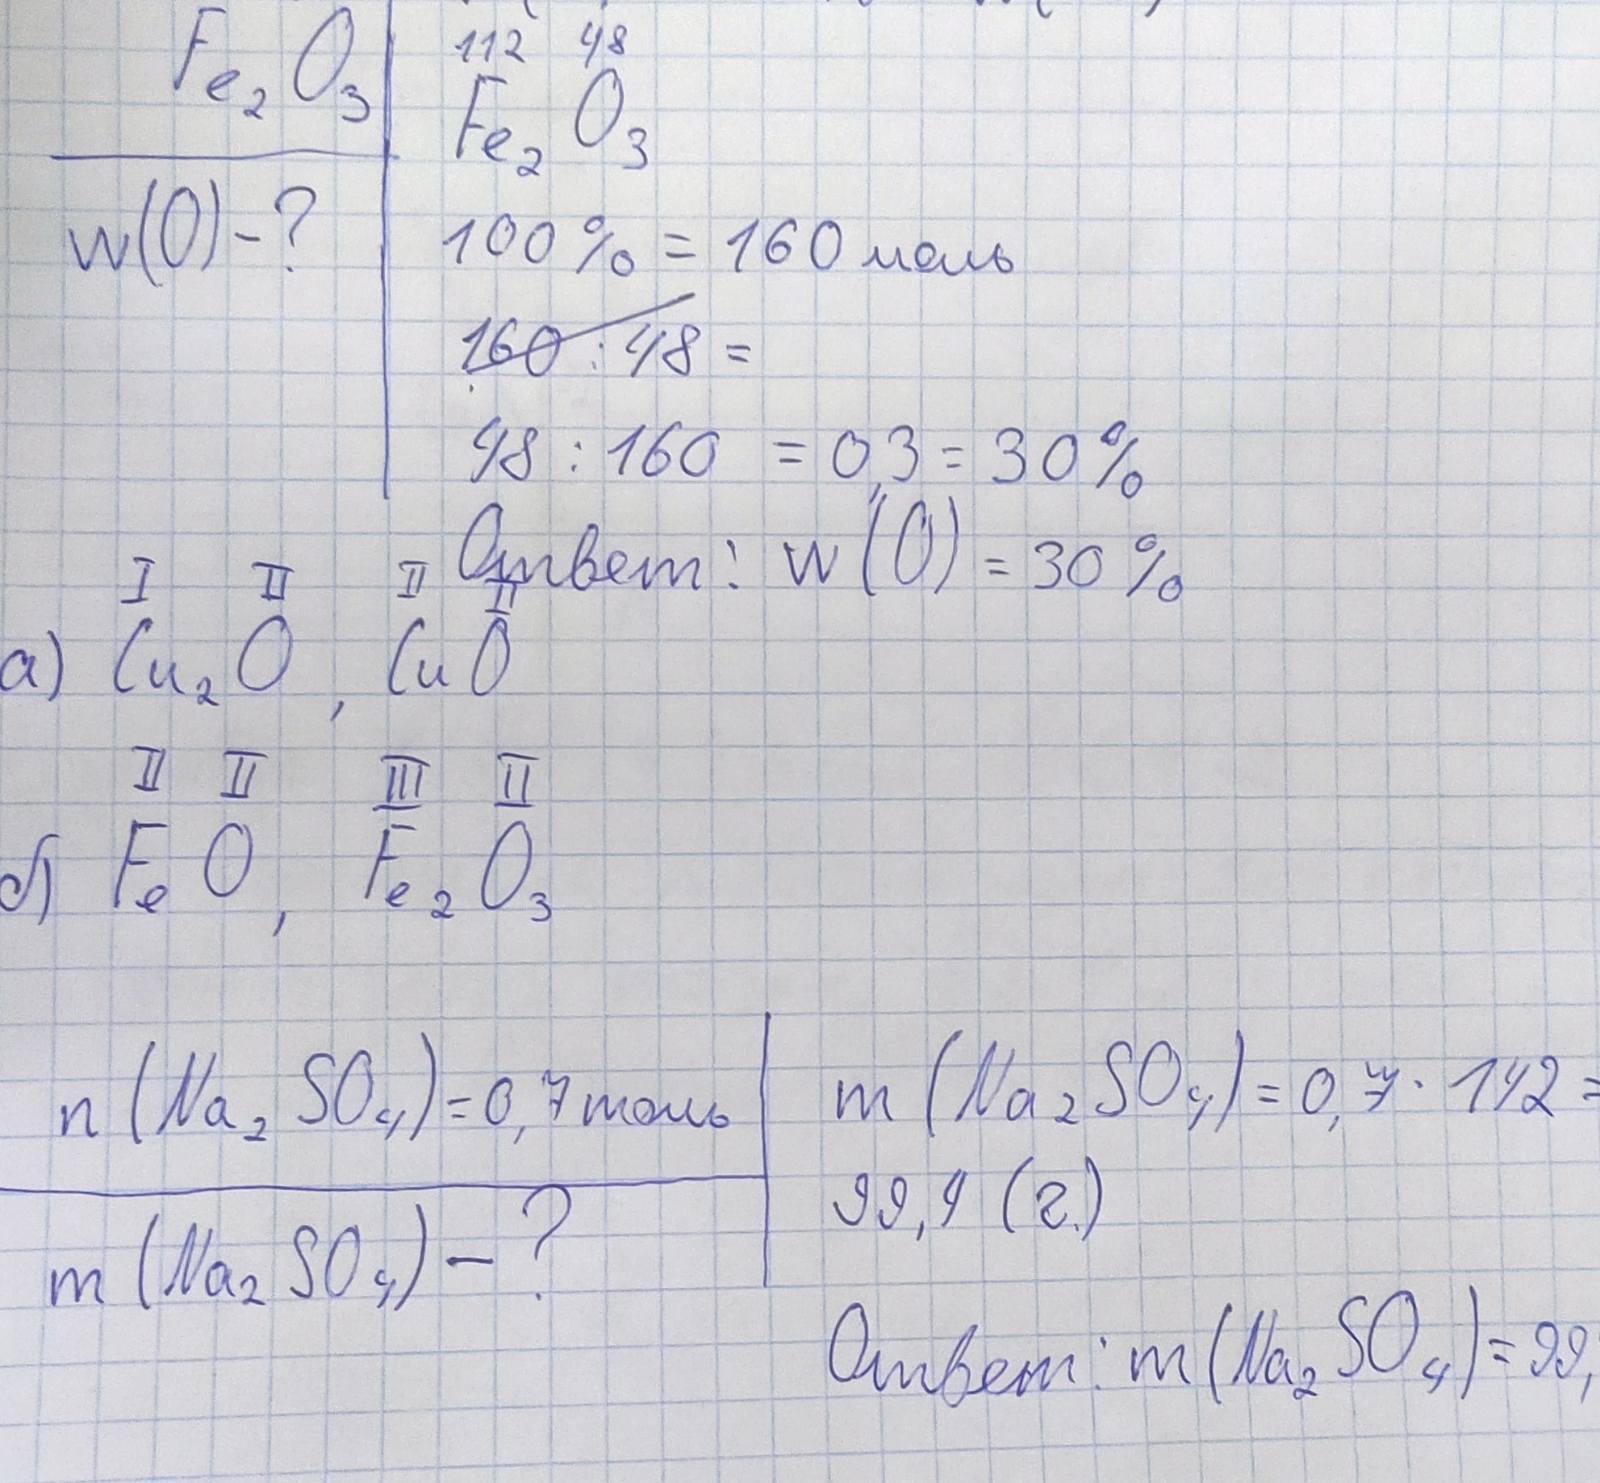 Fe₂O₃
w(O) - ?
112 48
Fe₂O₃
100% = 160 моль
160 : 48 =
48 : 160 = 0,3 = 30%
Ответ: w(O) = 30%
I II II II
а) Cu₂O, CuO
II II III II
б) FeO, Fe₂O₃
n(Na₂SO₄) = 0,7 моль
m(Na₂SO₄) - ?
m(Na₂SO₄) = 0,7 · 142 =
99,4 (г.)
Ответ: m(Na₂SO₄) = 99,